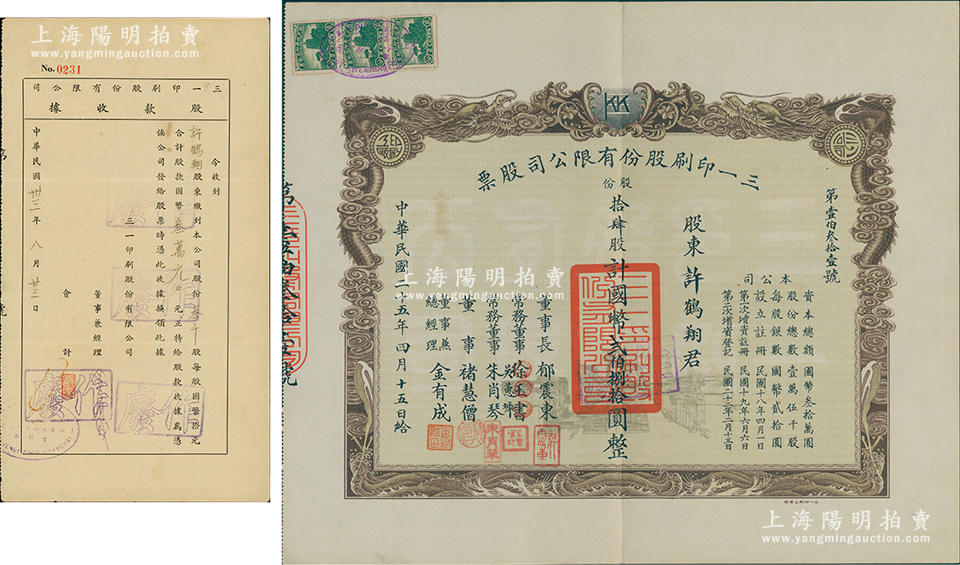 上海陽明拍賣
www.yangmingauction.com
No. 0231
三一印刷股份有限公司
股款收據
今收到
許鶴翔股東繳到本公司股份叁千股每股國幣拾元
合計股款國幣叁萬元正特給股款收據爲憑
俟公司發給股票時憑此收據換領此據
三一印刷股份有限公司
董事兼經理
會計
中華民國卅三年八月廿三日
KK
三一印刷股份有限公司股票
第壹佰叁拾壹號
本公司
資本總額國幣叁拾萬圓
股份總數壹萬伍千股
每股銀數國幣貳拾圓
設立註冊民國十八年四月一日
第一次增資註冊民國十九年六月六日
第二次增資登記民國二十三年二月十三日
股東許鶴翔君
股份
拾肆股計國幣貳佰捌拾圓整
董事長郁震東
常務董事徐玉書
常務董事朱肖琴
吳蕙
董事褚慧僧
董事兼總經理金有成
中華民國二十五年四月十五日給
上海陽明拍賣
www.yangmingauction.com
上海陽明拍賣
www.yangmingauction.com